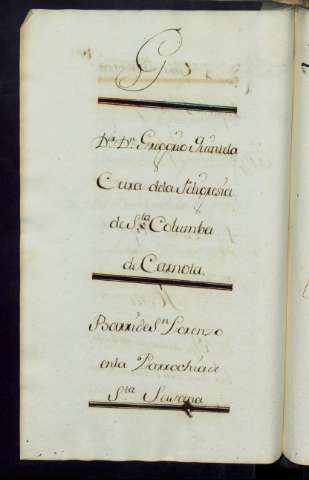 G
Dn. Dn. Gregorio Quintela
Cura dela Feligresia
de Sta. Columba
de Carnota
Barrio de Sn. Lorenzo
en la Parrochia de
Sta. Susana